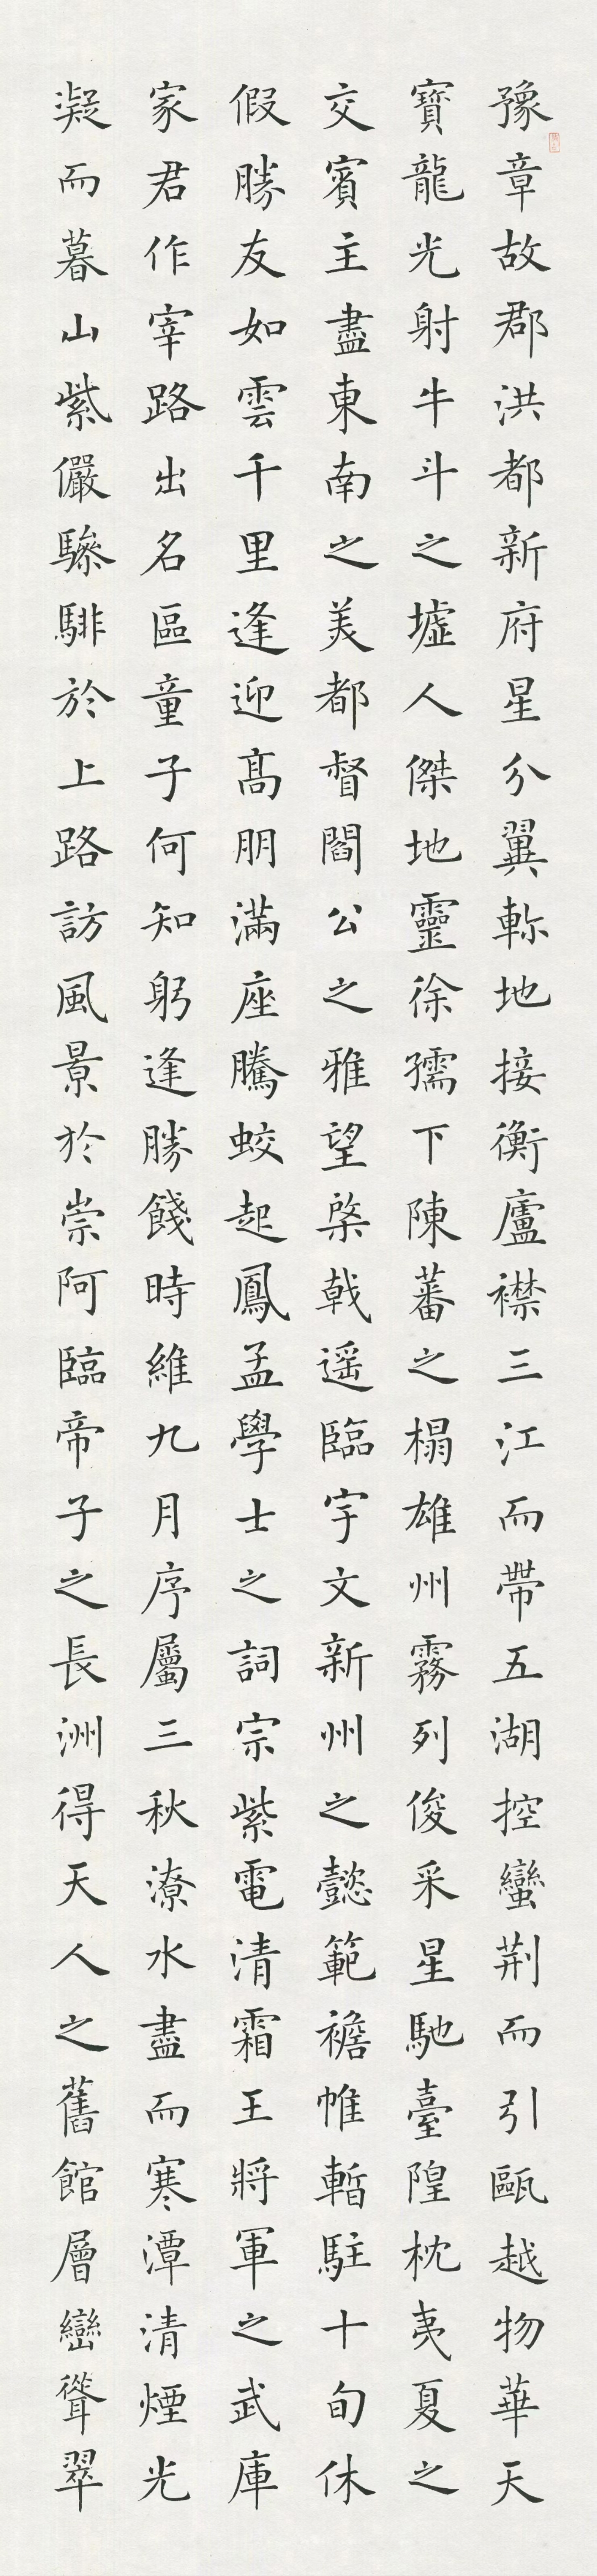 豫章故郡洪都新府星分翼軫地接衡廬襟三江而帶五湖控蠻荆而引甌越物華天
寶龍光射牛斗之墟人傑地靈徐孺下陳蕃之榻雄州霧列俊采星馳臺隍枕夷夏之
交賓主盡東南之美都督閻公之雅望棨戟遥臨宇文新州之懿範襜帷暫駐十旬休
假勝友如雲千里逢迎髙朋滿座騰蛟起鳳孟學士之詞宗紫電清霜王將軍之武庫
家君作宰路出名區童子何知躬逢勝餞時維九月序屬三秋潦水盡而寒潭清煙光
凝而暮山紫儼驂騑於上路訪風景於崇阿臨帝子之長洲得天人之舊館層巒聳翠